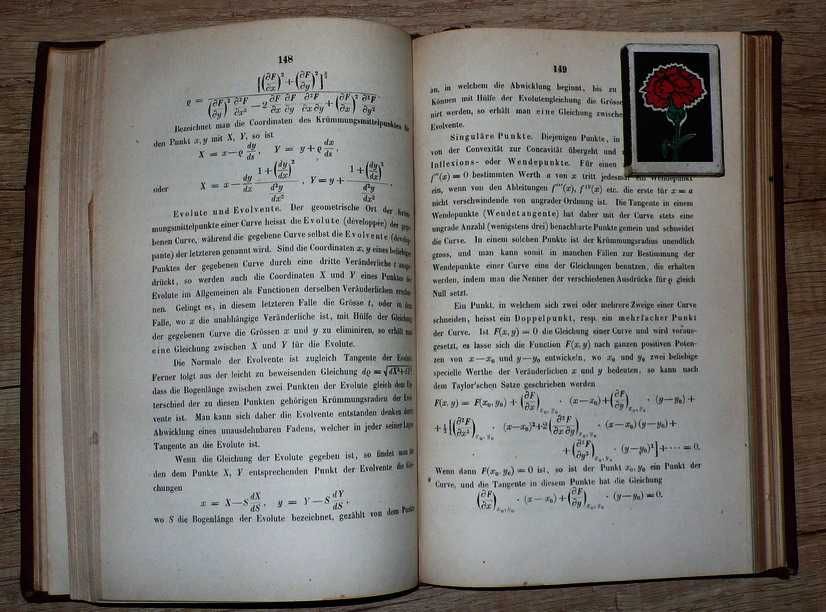 148
[(∂F/∂x)² + (∂F/∂y)²]^{3/2}
ϱ = ———
(∂F/∂y)² ∂²F/∂x² — 2 ∂F/∂x ∂F/∂y ∂²F/∂x∂y + (∂F/∂x)² ∂²F/∂y²
Bezeichnet man die Coordinaten des Krümmungsmittelpunktes für
den Punkt x, y mit X, Y, so ist
X = x — ϱ dy/ds, Y = y + ϱ dx/ds,
oder X = x — dy/dx · (1 + (dy/dx)²)/(d²y/dx²), Y = y + (1 + (dy/dx)²)/(d²y/dx²).
Evolute und Evolvente. Der geometrische Ort der Krüm-
mungsmittelpunkte einer Curve heisst die Evolute (développée) der gege-
benen Curve, während die gegebene Curve selbst die Evolvente (dévelop-
pante) der letzteren genannt wird. Sind die Coordinaten x, y eines beliebigen
Punktes der gegebenen Curve durch eine dritte Veränderliche t ausge-
drückt, so werden auch die Coordinaten X und Y eines Punktes der
Evolute im Allgemeinen als Functionen derselben Veränderlichen erschei-
nen. Gelingt es, in diesem letzteren Falle die Grösse t, oder in dem
Falle, wo x die unabhängige Veränderliche ist, mit Hülfe der Gleichung
der gegebenen Curve die Grössen x und y zu eliminiren, so erhält man
eine Gleichung zwischen X und Y für die Evolute.
Die Normale der Evolvente ist zugleich Tangente der Evolute.
Ferner folgt aus der leicht zu beweisenden Gleichung dϱ = √(dX²+dY²),
dass die Bogenlänge zwischen zwei Punkten der Evolute gleich dem Un-
terschied der zu diesen Punkten gehörigen Krümmungsradien der Evol-
vente ist. Man kann sich daher die Evolvente entstanden denken durch
Abwicklung eines unausdehnbaren Fadens, welcher in jeder seiner Lagen
Tangente an die Evolute ist.
Wenn die Gleichung der Evolute gegeben ist, so findet man für
den dem Punkte X, Y entsprechenden Punkt der Evolvente die Glei-
chungen
x = X — S dX/dS, y = Y — S dY/dS,
wo S die Bogenlänge der Evolute bezeichnet, gezählt von dem Punkte
149
an, in welchem die Abwicklung beginnt, bis zu
Können mit Hülfe der Evolutengleichung die Grösse
nirt werden, so erhält man eine Gleichung zwische
Evolvente.
Singuläre Punkte. Diejenigen Punkte, in
von der Convexität zur Concavität übergeht und
Inflexions- oder Wendepunkte. Für einen
f″(x) = 0 bestimmten Werth a von x tritt jedesmal ein Wendepunkt
ein, wenn von den Ableitungen f‴(x), fᴵⱽ(x) etc. die erste für x = a
nicht verschwindende von ungrader Ordnung ist. Die Tangente in einem
Wendepunkte (Wendetangente) hat daher mit der Curve stets eine
ungrade Anzahl (wenigstens drei) benachbarte Punkte gemein und schneidet
die Curve. In einem solchen Punkte ist der Krümmungsradius unendlich
gross, und man kann somit in manchen Fällen zur Bestimmung der
Wendepunkte einer Curve eine der Gleichungen benutzen, die erhalten
werden, indem man die Nenner der verschiedenen Ausdrücke für ϱ gleich
Null setzt.
Ein Punkt, in welchem sich zwei oder mehrere Zweige einer Curve
schneiden, heisst ein Doppelpunkt, resp. ein mehrfacher Punkt
der Curve. Ist F(x, y) = 0 die Gleichung einer Curve und wird voraus-
gesetzt, es lasse sich die Function F(x, y) nach ganzen positiven Poten-
zen von x — x₀ und y — y₀ entwickeln, wo x₀ und y₀ zwei beliebige
specielle Werthe der Veränderlichen x und y bedeuten, so kann nach
dem Taylor'schen Satze geschrieben werden
F(x, y) = F(x₀, y₀) + (∂F/∂x)x₀, y₀ · (x — x₀) + (∂F/∂y)x₀, y₀ · (y — y₀) +
+ ½ [(∂²F/∂x²)x₀, y₀ · (x — x₀)² + 2 (∂²F/∂x∂y)x₀, y₀ · (x — x₀)(y — y₀) +
+ (∂²F/∂y²)x₀, y₀ · (y — y₀)²] + ···· = 0.
Wenn dann F(x₀, y₀) = 0 ist, so ist der Punkt x₀, y₀ ein Punkt der
Curve, und die Tangente in diesem Punkte hat die Gleichung
(∂F/∂x)x₀, y₀ · (x — x₀) + (∂F/∂y)x₀, y₀ · (y — y₀) = 0.